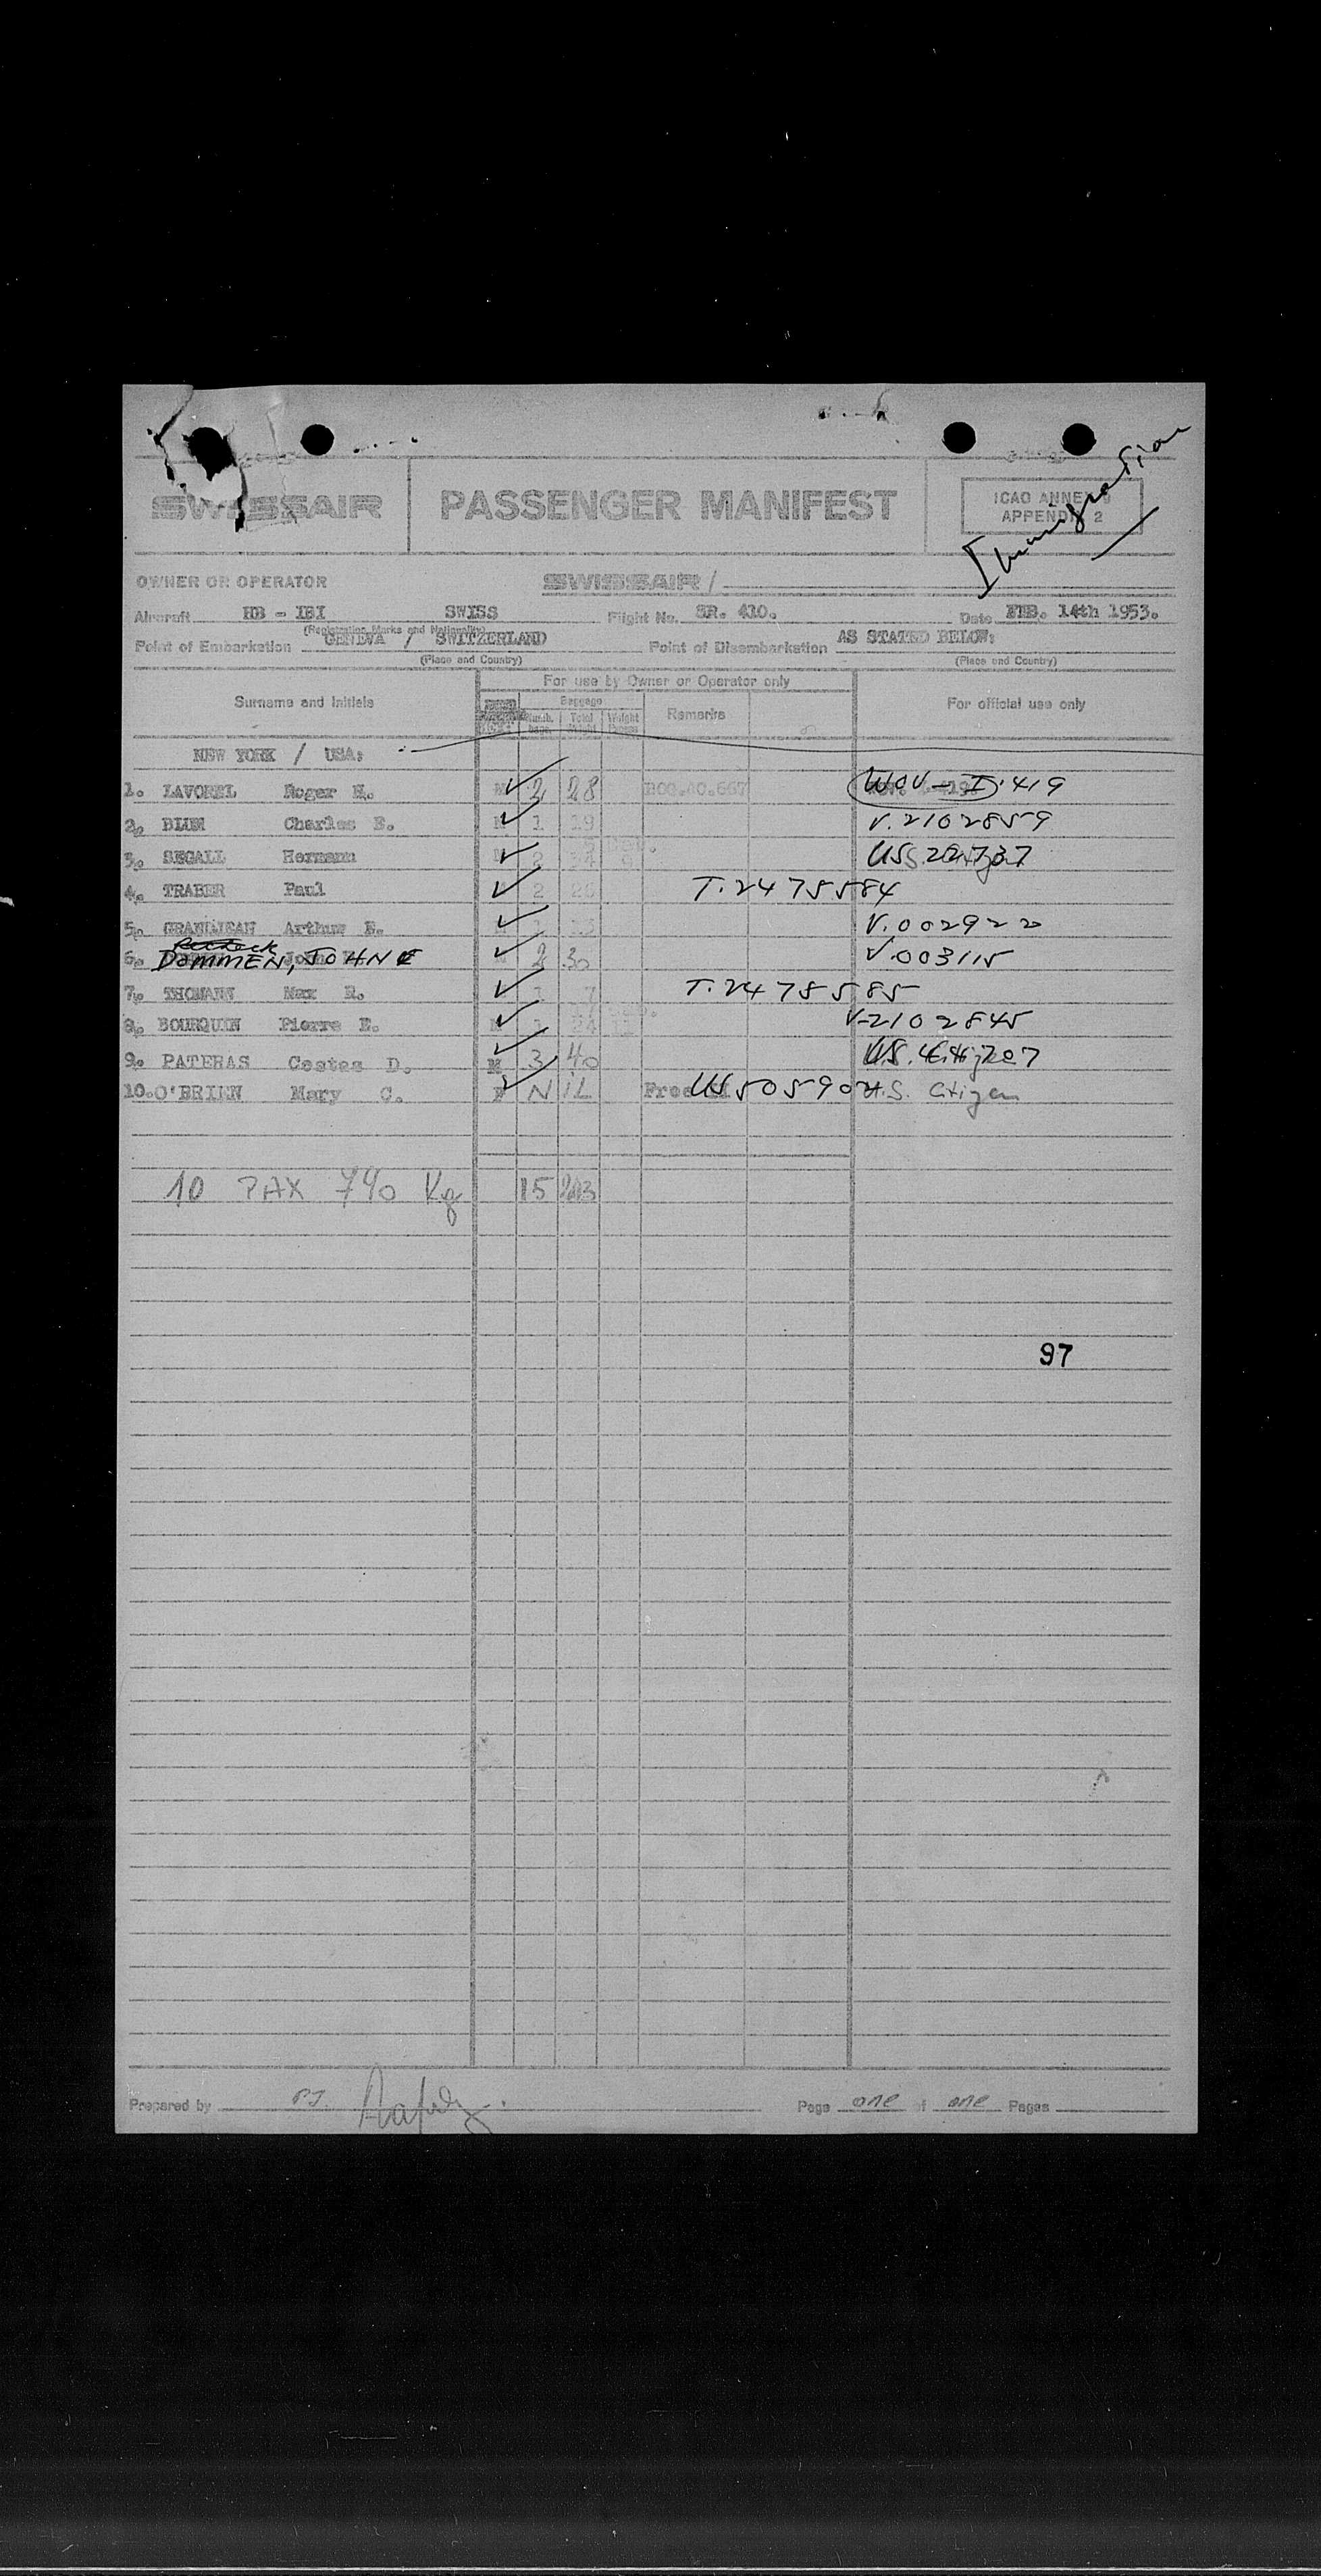 Immigration
SWISSAIR PASSENGER MANIFEST ICAO ANNEX 9
APPENDIX 2
OWNER OR OPERATOR SWISSAIR /
Aircraft HB - IBI SWISS Flight No. SR. 410. Date FEB. 14th 1953.
(Registration Marks and Nationality)
Point of Embarkation GENEVA / SWITZERLAND Point of Disembarkation AS STATED BELOW:
(Place and Country) (Place and Country)
For use by Owner or Operator only
Surname and Initials Baggage Remarks For official use only
Numb. bags Total Weight Weight Excess
NEW YORK / USA:
1. LAVOREL Roger H. M 2 28 BOG.40.667 WOV - I. 419
2. BLUM Charles E. M 1 19 V.2102859
3. SEGALL Hermann M 2 34 9 US 22737
4. TRABER Paul 2 T.2475584
5. GRANDJEAN Arthur E. V.002922
6. DOMMEN, JOHN E 2 30 V.003115
7. THOMANN Max R. 1 7 T.2478585
8. BOURQUIN Pierre E. M 1 24 V-2102845
9. PATERAS Costas D. M 3 40 U.S.
10. O'BRIEN Mary C. F NIL Free US 50590 U.S. Citizen
10 PAX 740 Kg 15 213
97
Prepared by Page one of one Pages